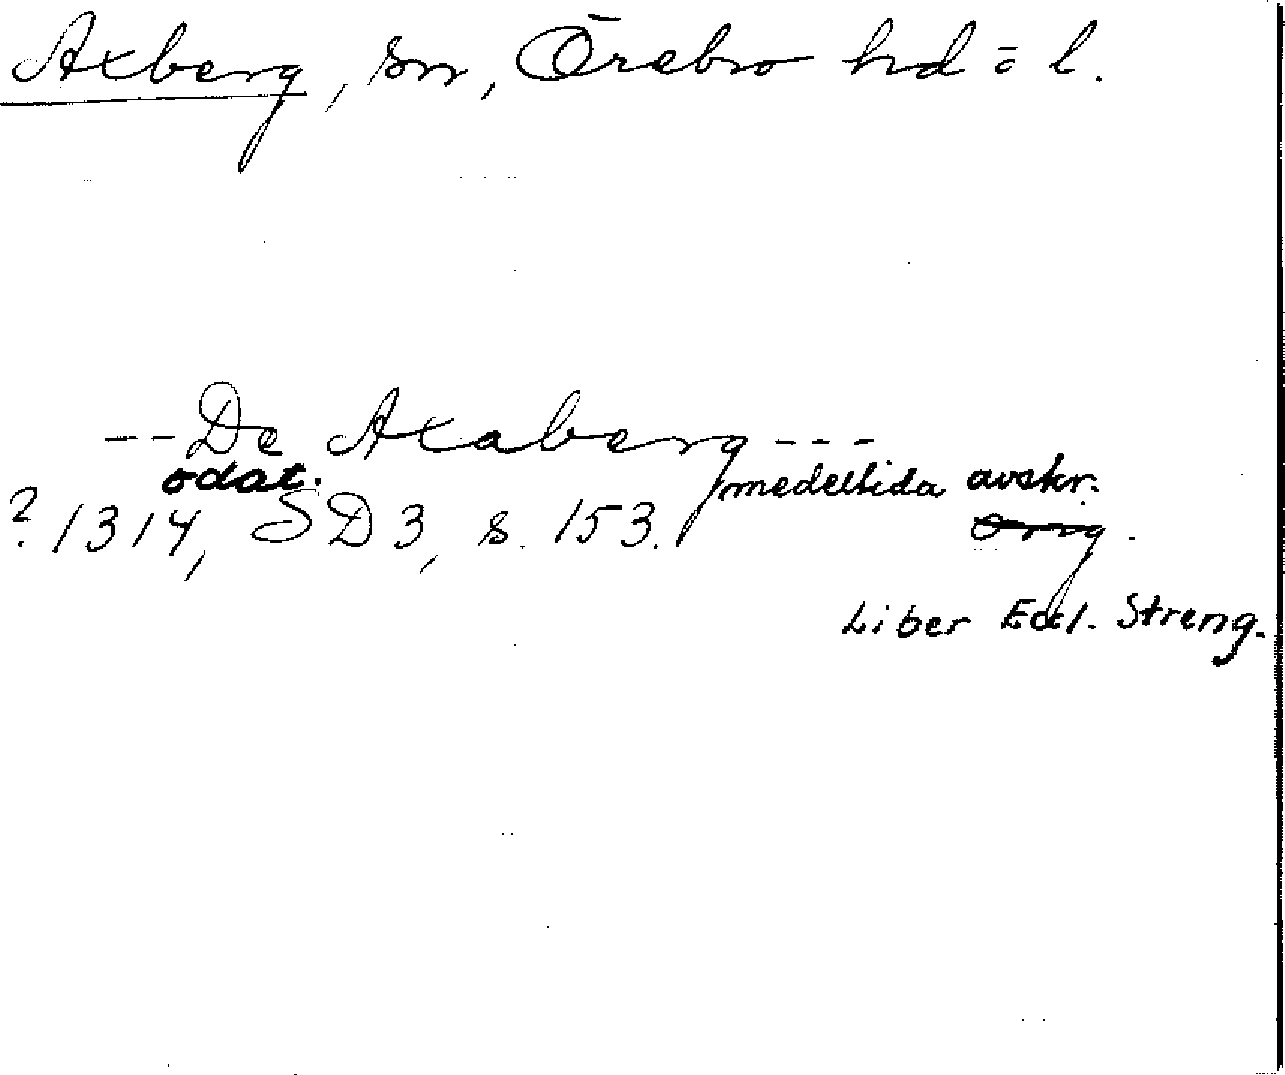 Axberg, sn, Örebro hd o l.
--De Axaberg---
odat. medeltida avskr.
? 1314, SD 3, s. 153. Orig.
Liber Eccl. Streng.